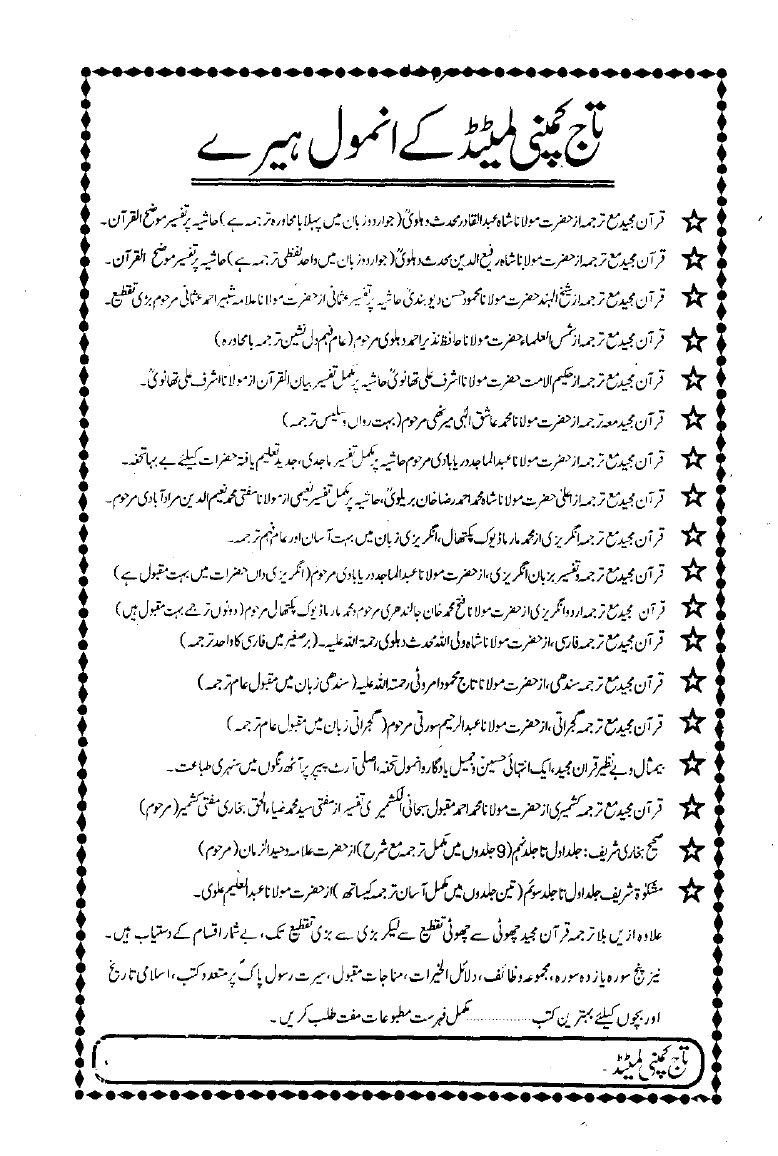 تاج کمپنی لمیٹڈ کے انمول ہیرے
قرآن مجید مع ترجمہ از حضرت مولانا شاہ عبدالقادر محدث دہلویؒ (جو اردو زبان میں پہلا بامحاورہ ترجمہ ہے) حاشیہ پر تفسیر موضح القرآن۔
قرآن مجید مع ترجمہ از حضرت مولانا شاہ رفیع الدین محدث دہلویؒ (جو اردو زبان میں واحد لفظی ترجمہ ہے) حاشیہ پر تفسیر موضح القرآن۔
قرآن مجید مع ترجمہ از شیخ الہند حضرت مولانا محمود حسن دیوبندیؒ حاشیہ پر تفسیر عثمانی از حضرت مولانا علامہ شبیر احمد عثمانی مرحوم بڑی تقطیع۔
قرآن مجید مع ترجمہ از شمس العلماء حضرت مولانا حافظ نذیر احمد دہلوی مرحوم (عام فہم دل نشین ترجمہ بامحاورہ)
قرآن مجید مع ترجمہ از حکیم الامت حضرت مولانا اشرف علی تھانویؒ حاشیہ پر مکمل تفسیر بیان القرآن از مولانا اشرف علی تھانویؒ۔
قرآن مجید معہ ترجمہ از حضرت مولانا محمد عاشق الٰہی میرٹھی مرحوم (بہت رواں و سلیس ترجمہ)
قرآن مجید مع ترجمہ از حضرت مولانا عبدالماجد دریابادی مرحوم حاشیہ پر مکمل تفسیر ماجدی، جدید تعلیم یافتہ حضرات کیلئے بے بہا تحفہ۔
قرآن مجید مع ترجمہ از اعلیٰ حضرت مولانا شاہ محمد احمد رضا خان بریلویؒ، حاشیہ پر مکمل تفسیر نعیمی از مولانا مفتی محمد نعیم الدین مراد آبادی مرحوم۔
قرآن مجید مع ترجمہ انگریزی از محمد مارماڈیوک پکتھال، انگریزی زبان میں بہت آسان اور عام فہم ترجمہ۔
قرآن مجید مع ترجمہ و تفسیر بزبان انگریزی، از حضرت مولانا عبدالماجد دریابادی مرحوم (انگریزی داں حضرات میں بہت مقبول ہے)
قرآن مجید مع ترجمہ اردو انگریزی از حضرت مولانا فتح محمد خان جالندھری مرحوم و محمد مارماڈیوک پکتھال مرحوم (دونوں ترجمے بہت مقبول ہیں)
قرآن مجید مع ترجمہ فارسی، از حضرت مولانا شاہ ولی اللہ محدث دہلوی رحمۃ اللہ علیہ۔ (برصغیر میں فارسی کا واحد ترجمہ)
قرآن مجید مع ترجمہ سندھی، از حضرت مولانا تاج محمود امروٹی رحمتہ اللہ علیہ (سندھی زبان میں مقبول عام ترجمہ)
قرآن مجید مع ترجمہ گجراتی، از حضرت مولانا عبدالرحیم سورتی مرحوم (گجراتی زبان میں مقبول عام ترجمہ)
بیمثال و بے نظیر قرآن مجید، ایک انتہائی حسین و جمیل یادگار و انمول تحفہ، اصلی آرٹ پیپر پر آٹھ رنگوں میں سنہری طباعت۔
قرآن مجید مع ترجمہ کشمیری از حضرت مولانا محمد احمد مقبول سبحانی الکشمیری تفسیر از مفتی سید محمد ضیاء الحق بخاری مفتی کشمیر (مرحوم)
صحیح بخاری شریف: جلد اول تا جلد نہم (9 جلدوں میں مکمل ترجمہ مع شرح) از حضرت علامہ وحید الزمان (مرحوم)
مشکوٰۃ شریف جلد اول تا جلد سوئم (تین جلدوں میں مکمل آسان ترجمہ کیساتھ) از حضرت مولانا عبدالعلیم علوی۔
علاوہ ازیں بلا ترجمہ قرآن مجید چھوٹی سے چھوٹی تقطیع سے لیکر بڑی سے بڑی تقطیع تک، بے شمار اقسام کے دستیاب ہیں۔
نیز پنج سورہ یازدہ سورہ، مجموعہ وظائف، دلائل الخیرات، مناجات مقبول، سیرت رسول پاکؐ پر متعدد کتب، اسلامی تاریخ
اور بچوں کیلئے بہترین کتب ................ مکمل فہرست مطبوعات مفت طلب کریں۔
تاج کمپنی لمیٹڈ۔